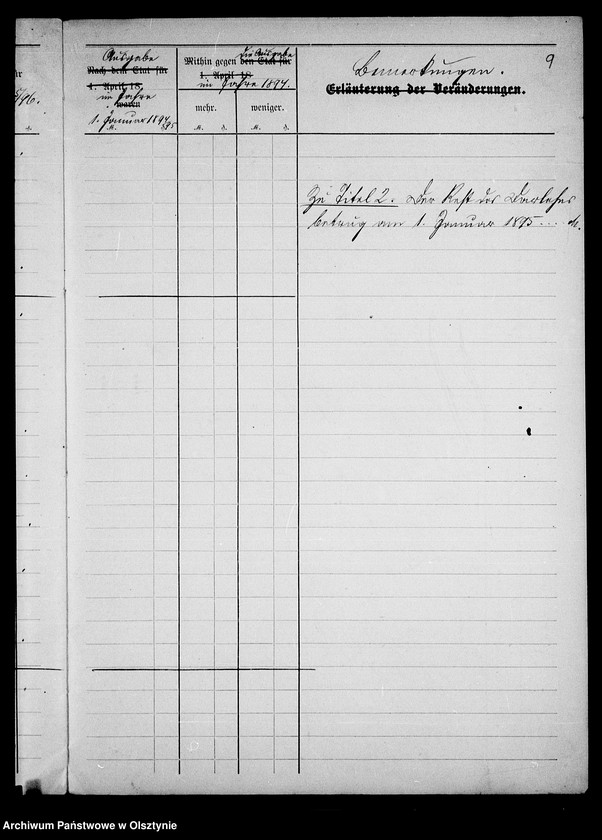 9
Ausgabe
Nach dem Etat für
1. April 18
im Jahre
waren
1. Januar 1894/95
M. ₰.
Mithin gegen den Etat für
die Ausgabe
1. April 18
im Jahre 1894.
mehr. weniger.
M. ₰. M. ₰.
Bemerkungen.
Erläuterung der Veränderungen.
Zu Titel 2. Der Rest des Darlehns
betrug am 1. Januar 1895 ... M.
Archiwum Państwowe w Olsztynie